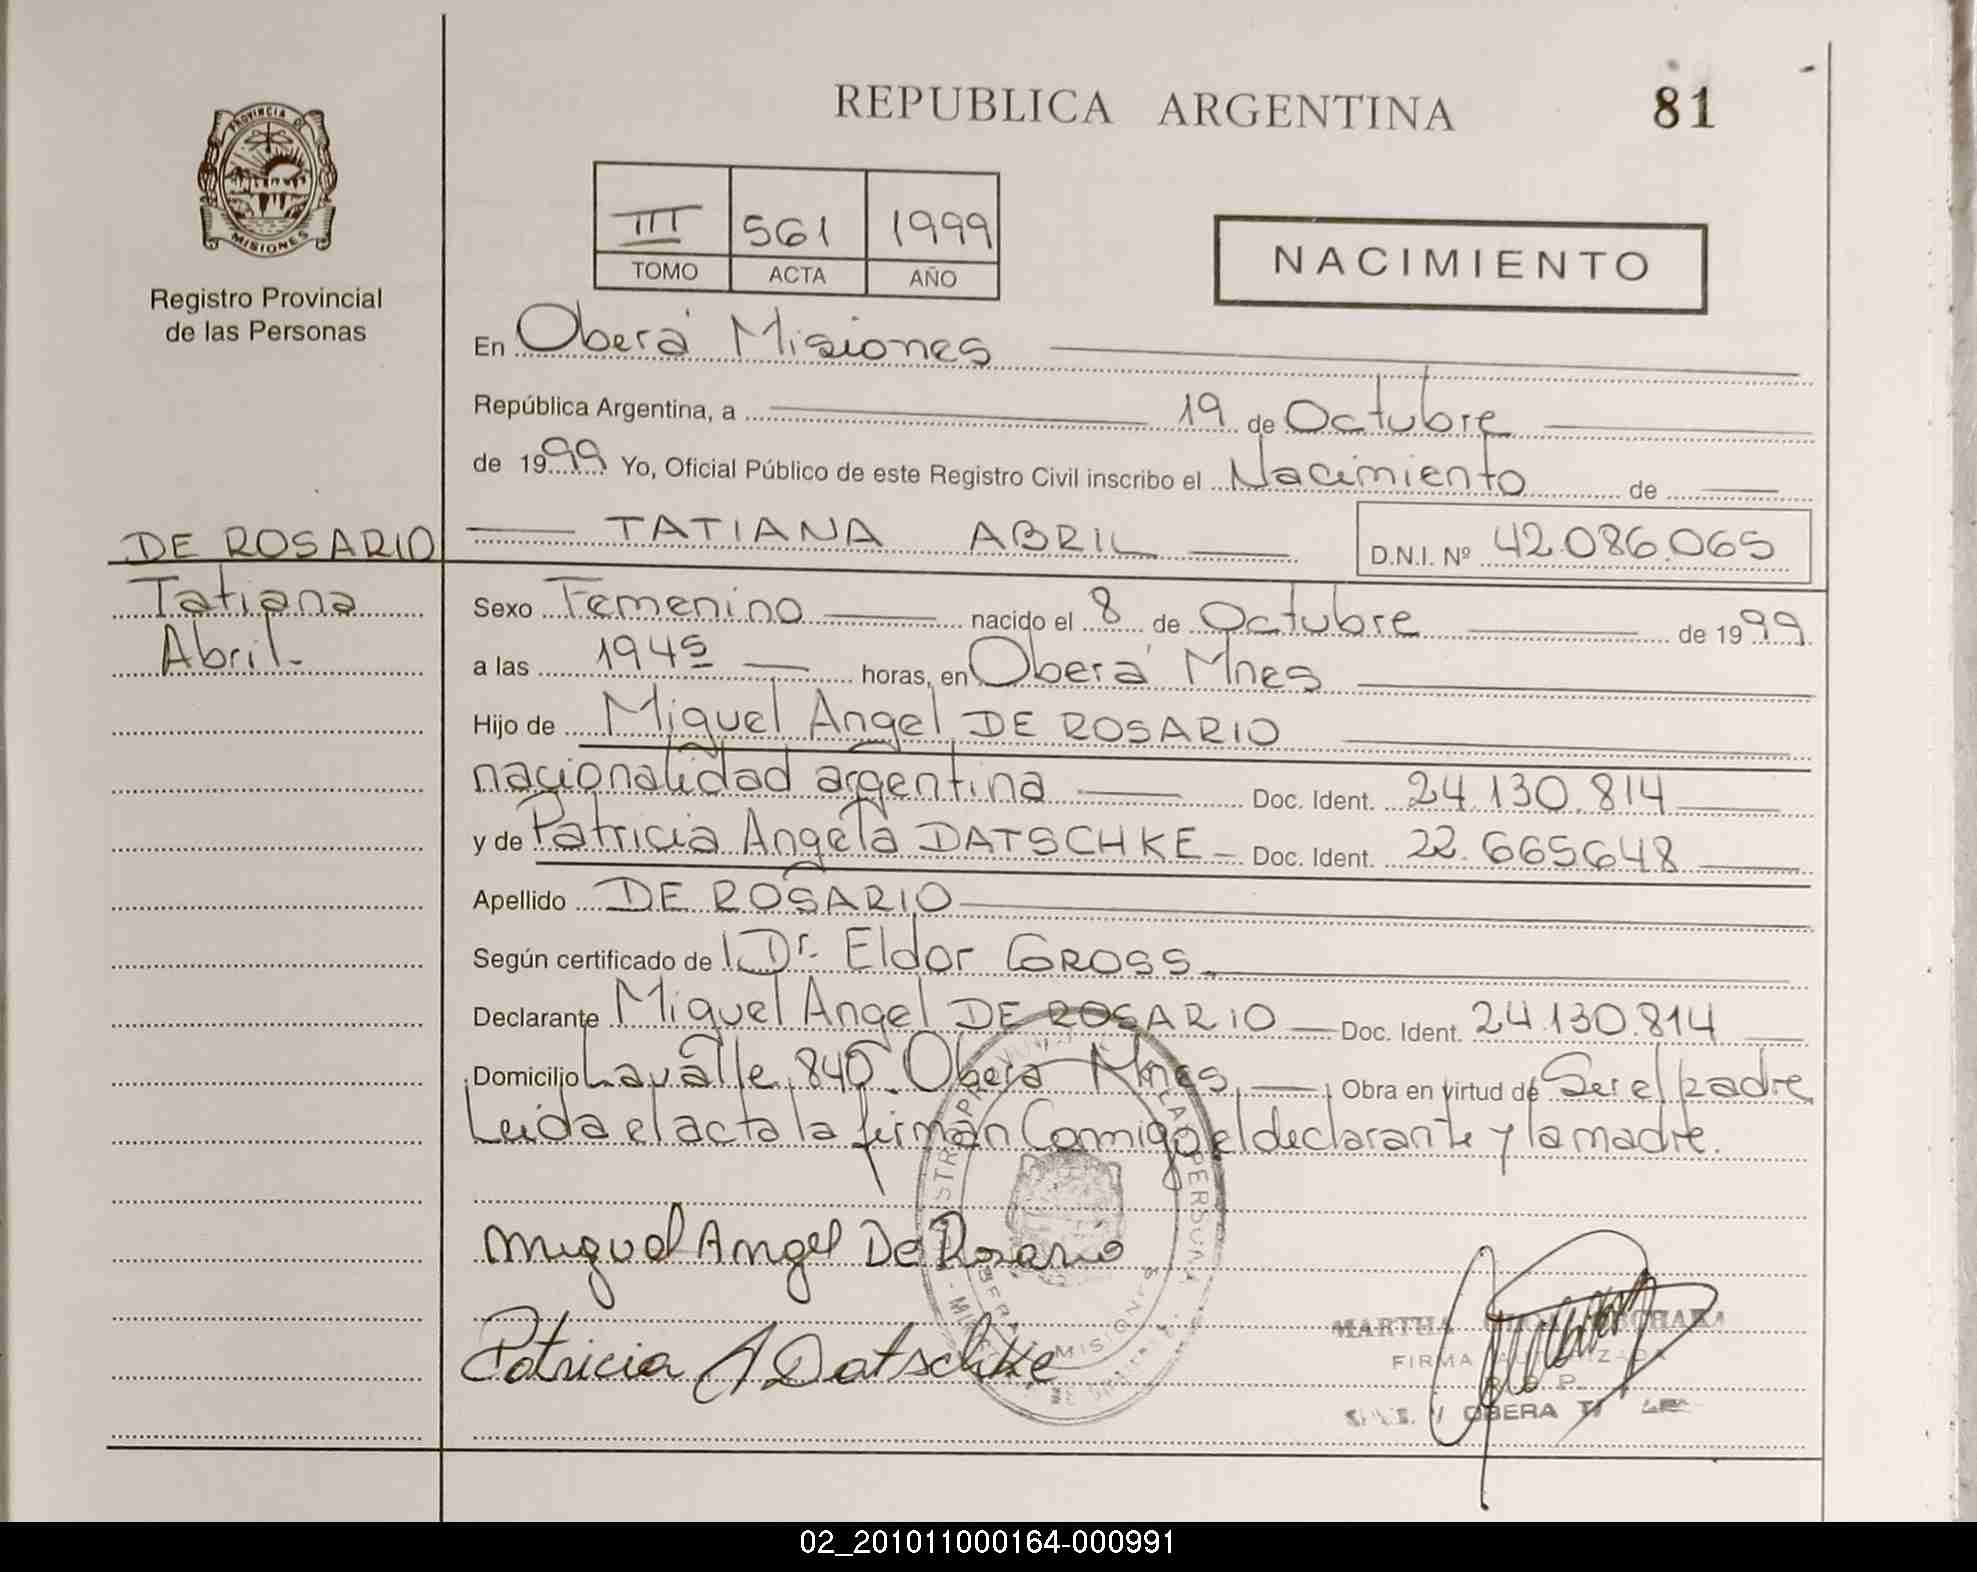 REPUBLICA ARGENTINA
81
PROVINCIA DE
MISIONES
Registro Provincial
de las Personas
III 561 1999
TOMO ACTA AÑO
NACIMIENTO
En Oberá Misiones
República Argentina, a 19 de Octubre
de 1999 Yo, Oficial Público de este Registro Civil inscribo el Nacimiento de
TATIANA ABRIL D.N.I. Nº 42.086.065
DE ROSARIO
Tatiana
Abril.
Sexo Femenino nacido el 8 de Octubre de 1999
a las 1945 horas, en Oberá Mnes
Hijo de Miguel Angel DE ROSARIO
nacionalidad argentina Doc. Ident. 24.130.814
y de Patricia Angela DATSCHKE Doc. Ident. 22.665648
Apellido DE ROSARIO
Según certificado de Dr. Eldor GROSS
Declarante Miguel Angel DE ROSARIO Doc. Ident. 24.130.814
Domicilio Lavalle 840 Oberá Mnes Obra en virtud de Ser el padre
Leida el acta la firman Conmigo el declarante y la madre.
Miguel Angel De Rosario
Patricia A Datschke
MARTHA
FIRMA
OBERA
MISIONES
02_201011000164-000991